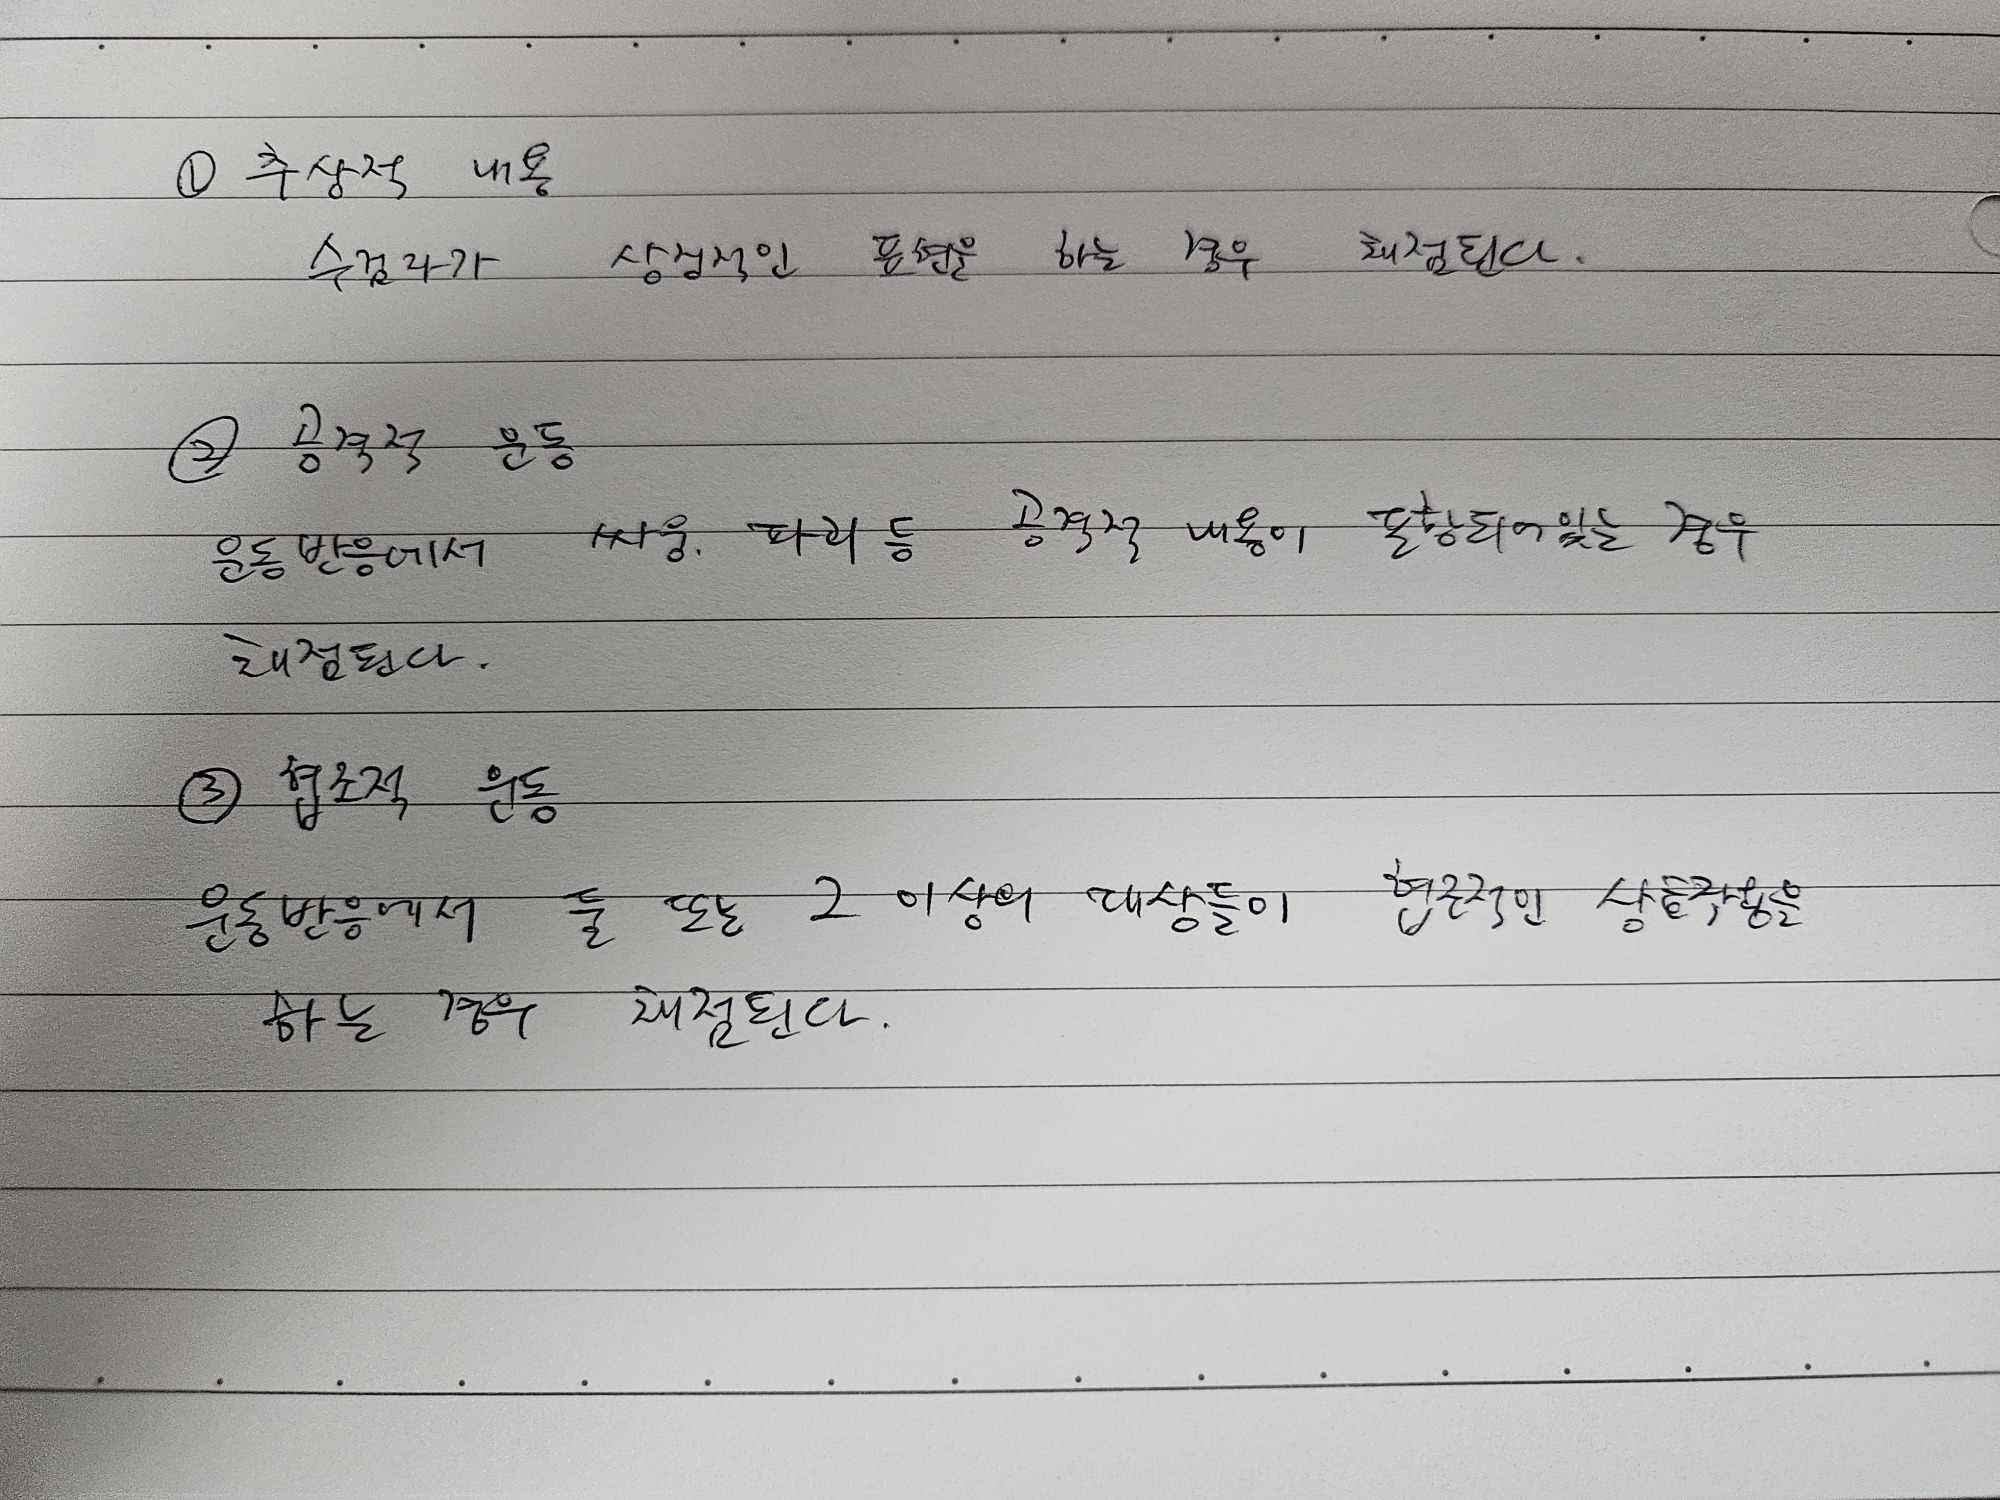 ① 추상적 내용
수검자가 상징적인 표현을 하는 경우 채점된다.
② 공격적 운동
운동반응에서 싸움, 파괴 등 공격적 내용이 포함되어있는 경우
채점된다.
③ 협조적 운동
운동반응에서 둘 또는 그 이상의 대상들이 협조적인 상호작용을
하는 경우 채점된다.